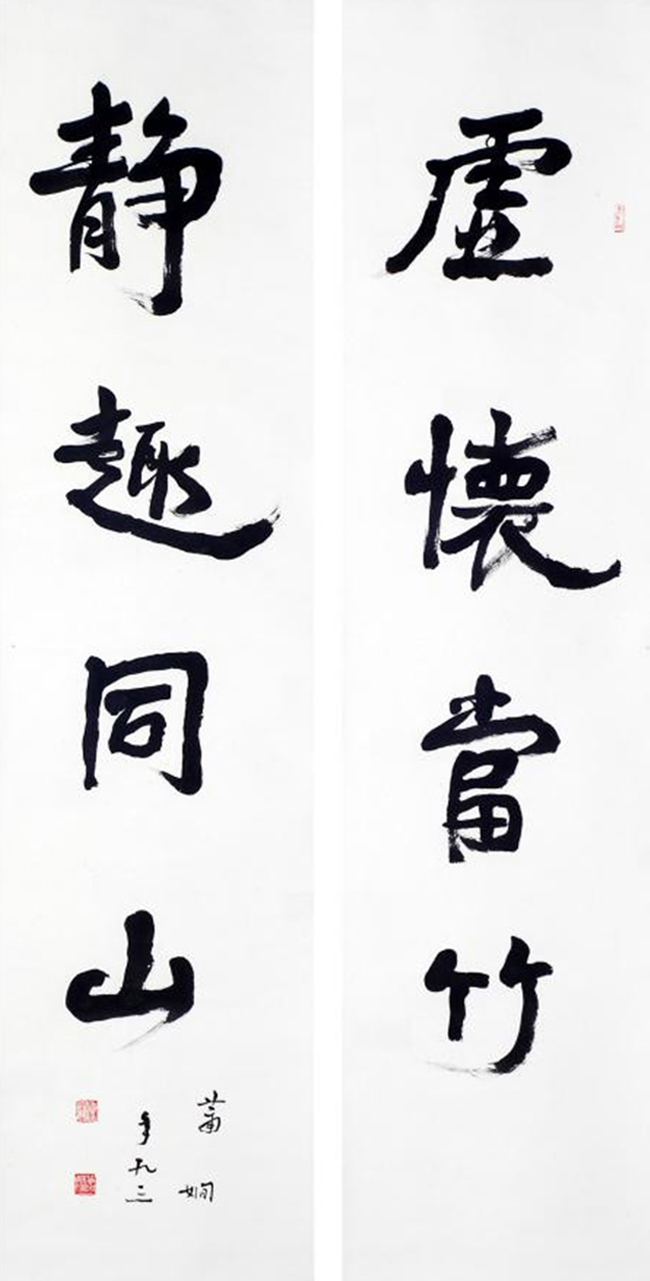 虛懷當竹
静趣同山
蕭嫻
年九三